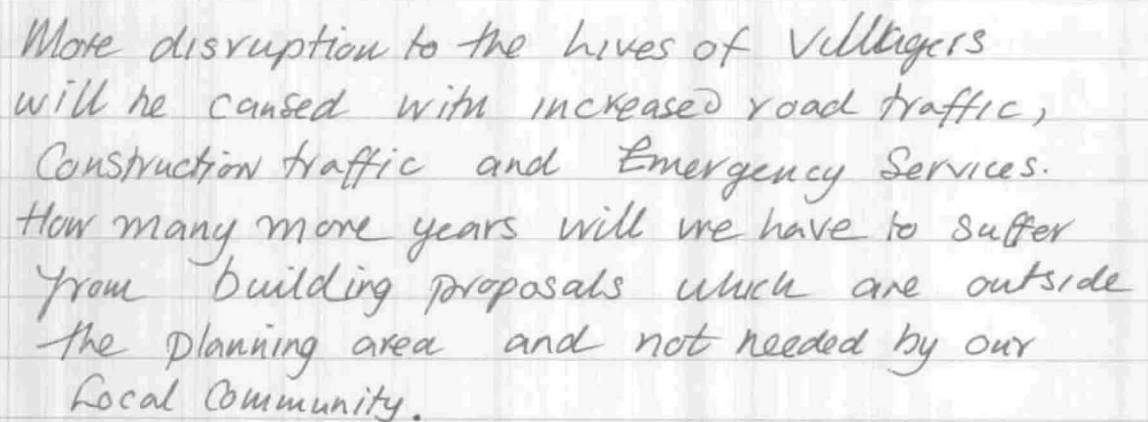 More disruption to the lives of Villagers
will be caused with increased road traffic,
Construction traffic and Emergency Services.
How many more years will we have to suffer
from building proposals which are outside
the planning area and not needed by our
Local Community.